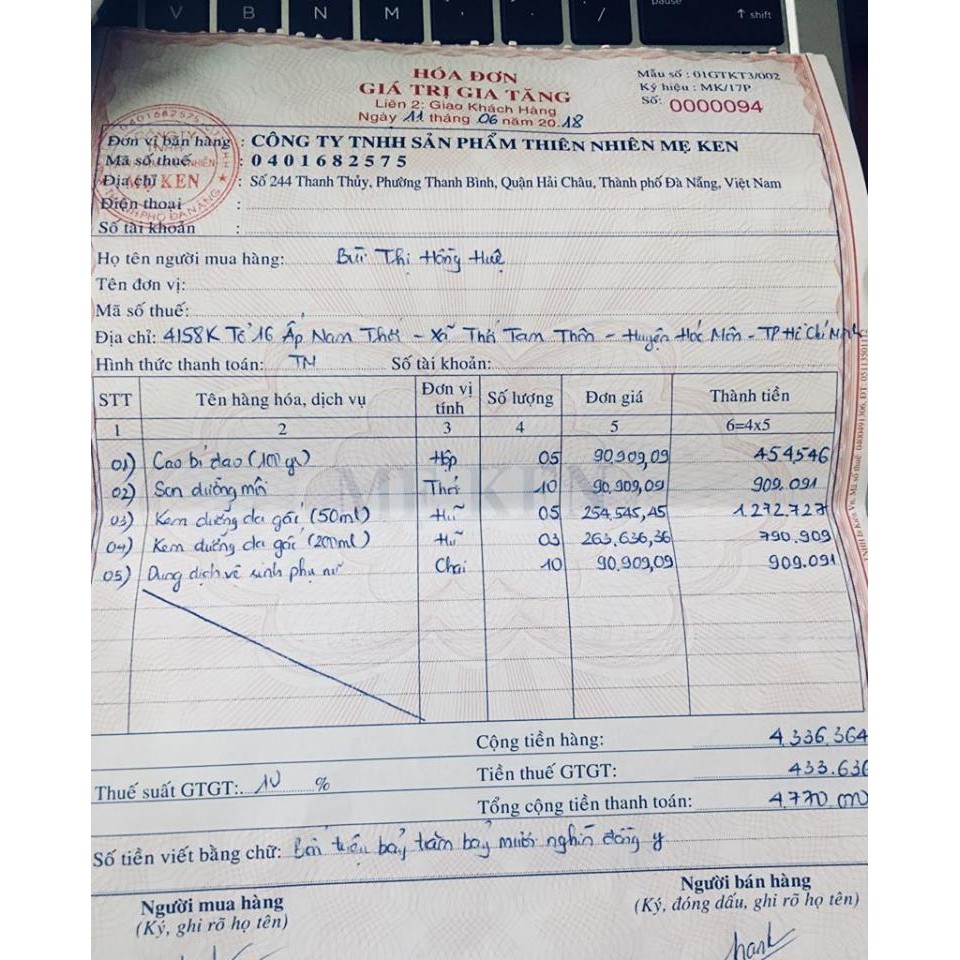 V B N M / pause ↑ shift
HÓA ĐƠN
GIÁ TRỊ GIA TĂNG
Liên 2: Giao Khách Hàng
Ngày 11 tháng 06 năm 2018
Mẫu số : 01GTKT3/002
Ký hiệu : MK/17P
Số: 0000094
Đơn vị bán hàng : CÔNG TY TNHH SẢN PHẨM THIÊN NHIÊN MẸ KEN
Mã số thuế : 0401682575
Địa chỉ : Số 244 Thanh Thủy, Phường Thanh Bình, Quận Hải Châu, Thành phố Đà Nẵng, Việt Nam
Điện thoại :
Số tài khoản :
MẸ KEN
Họ tên người mua hàng: Bùi Thị Hồng Huệ
Tên đơn vị:
Mã số thuế:
Địa chỉ: 4158K Tổ 16 Ấp Nam Thới - Xã Thới Tam Thôn - Huyện Hóc Môn - TP Hồ Chí Minh
Hình thức thanh toán: TM Số tài khoản:
STT Tên hàng hóa, dịch vụ Đơn vị tính Số lượng Đơn giá Thành tiền
1 2 3 4 5 6=4x5
01) Cao bí đao (100gr) Hộp 05 90.909,09 454.546
02) Son dưỡng môi Thỏi 10 90.909,09 909.091
03) Kem dưỡng da gấc (50ml) Hũ 05 254.545,45 1.272.727
04) Kem dưỡng da gấc (200ml) Hũ 03 263.636,36 790.909
05) Dung dịch vệ sinh phụ nữ Chai 10 90.909,09 909.091
MẸ KEN
Cộng tiền hàng: 4.336.364
Thuế suất GTGT: 10 % Tiền thuế GTGT: 433.636
Tổng cộng tiền thanh toán: 4.770.000
Số tiền viết bằng chữ: Bốn triệu bảy trăm bảy mươi nghìn đồng y
Người mua hàng
(Ký, ghi rõ họ tên)
Người bán hàng
(Ký, đóng dấu, ghi rõ họ tên)